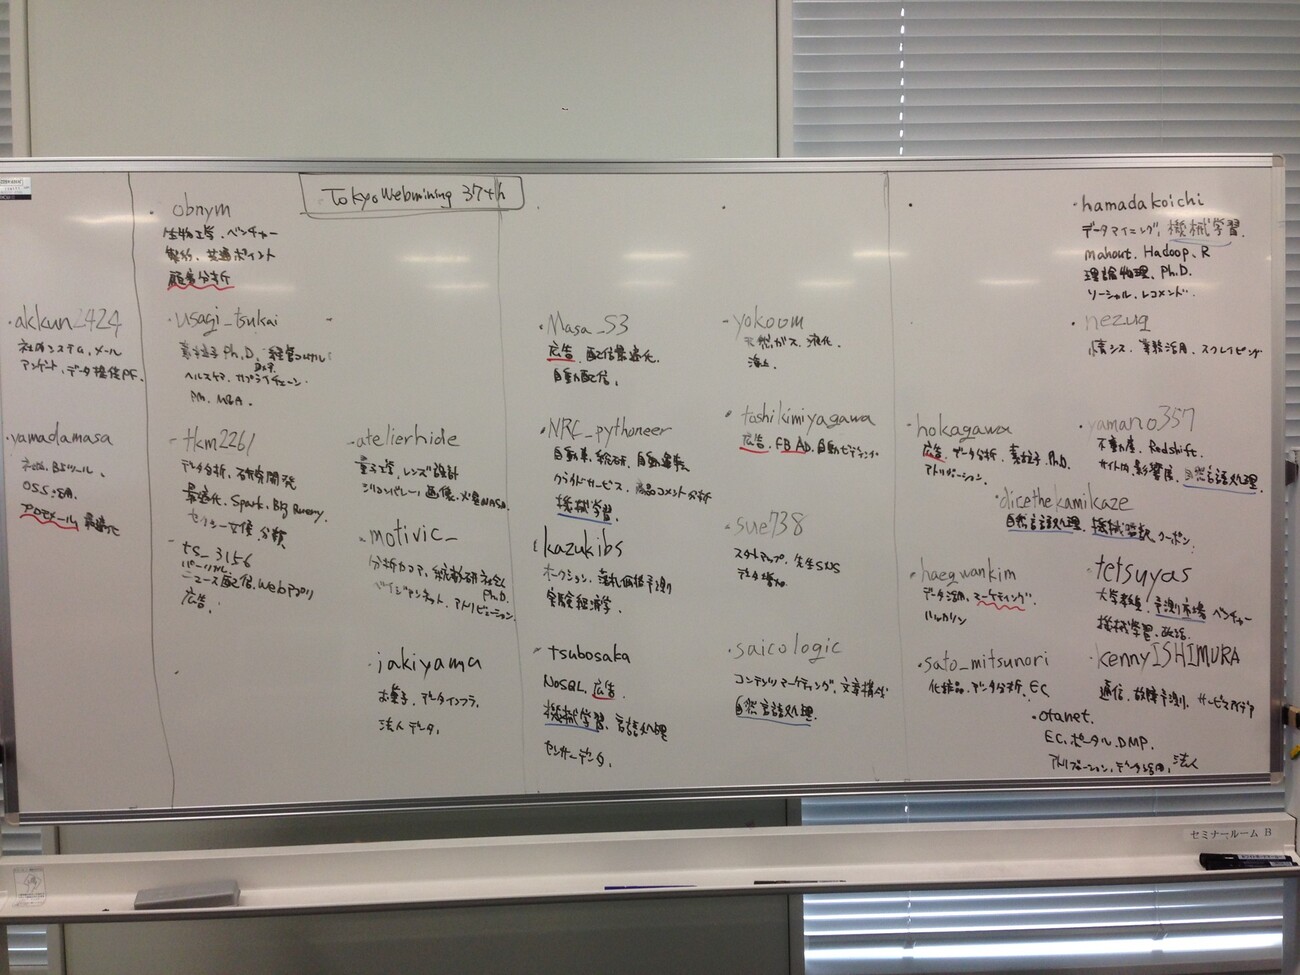 TokyoWebmining 37th
akkun2424
社内システム、メール
アンケート、データ提供PF.
yamadamasa
社内、BIツール、
OSS活用
プロモメール 最適化
obnym
生物工学、ベンチャー
解約、共通ポイント
顧客分析
usagi_tsukai
素粒子Ph.D、経営コンサル
ヘルスケア、サプライチェーン
PM、M&A.
tkm2261
データ分析、研究開発
最適化、Spark、Big Query.
セクシー女優、分類
ts_3156
ニュース配信、Webアプリ
広告.
atelierhide
量子工学、レンズ設計
シリコンバレー、画像、火星NASA.
motivic_
Ph.D.
ベイジアンネット、アトリビューション.
jakiyama
お菓子、データインフラ.
法人データ.
Masa_S3
広告、配信最適化.
自動配信.
NRC_pythoneer
自動車、総研、自動運転
クラウドサービス、商品コメント分析
機械学習.
kazukibs
オークション、落札価格予測
実験経済学.
tsubosaka
NoSQL、広告.
機械学習、言語処理
センサーデータ.
yokoom
天然ガス、液化.
海上.
toshikimiyagawa
広告、FB AD、自動ビディング
sue738
スタートアップ、先生SNS
saicologic
コンテンツマーケティング、文章構成
自然言語処理.
hokagawa
広告、データ分析、素粒子、Ph.D.
アトリビューション.
haegwankim
データ活用、マーケティング.
ハッカソン
sato_mitsunori
化粧品、データ分析、EC
hamadakoichi
データマイニング、機械学習.
Mahout、Hadoop、R
理論物理、Ph.D.
ソーシャル、レコメンド.
nezuq
情シス、業務活用、スクレイピング
yamano357
不動産、Redshift.
サイト内影響度、自然言語処理.
dicethekamikaze
自然言語処理、機械翻訳、クーポン.
tetsuyas
大学教員、予測市場、ベンチャー
機械学習、政治.
kennyISHIMURA
通信、故障予測、サービスアイデア
otanet.
EC、ポータル、DMP.
アトリビューション、データ活用、法人
セミナールーム B